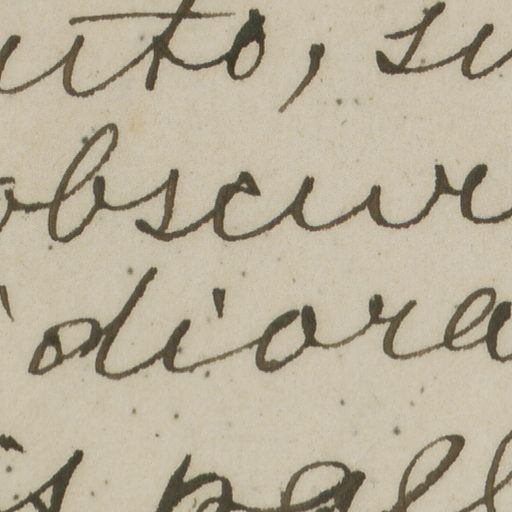 uto, su
obscur
diora
is pall